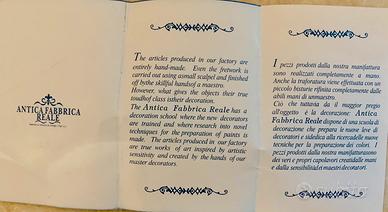 ANTICA FABBRICA
REALE
The articles produced in our factory are
entirely hand-made. Even the fretwork is
carried out using asmall scalpel and finished
off bythe skillful handsof a maestro.
However, what gives the objects their true
toudhof class istheir decoration.
The Antica Fabbrica Reale has a
decoration school where the new decorators
are trained and where research into novel
techniques for the preparation of paints is
made. The articles produced in our factory
are true works of art inspired by artistic
sensitivity and created by the hands of our
master decorators.
I pezzi prodotti dalla nostra manifattura
sono realizzati completamente a mano.
Anche la traforatura viene effettuata con un
piccolo bisturi e rifinita completamente dalle
abili mani di unmaestro.
Ciò che tuttavia da il maggior pregio
all'oggetto è la decorazione: Antica
Fabbrica Reale dispone di una scuola di
decorazione che prepara le nuove leve di
decoratori e sidedica alla ricercadelle nuove
tecniche per la preparazione dei colori. I
pezzi prodotti dalla nostra manifatturasono
dei veri e propri capolavori creatidalle mani
e dalla sensibilitàdei maestri decoratori.